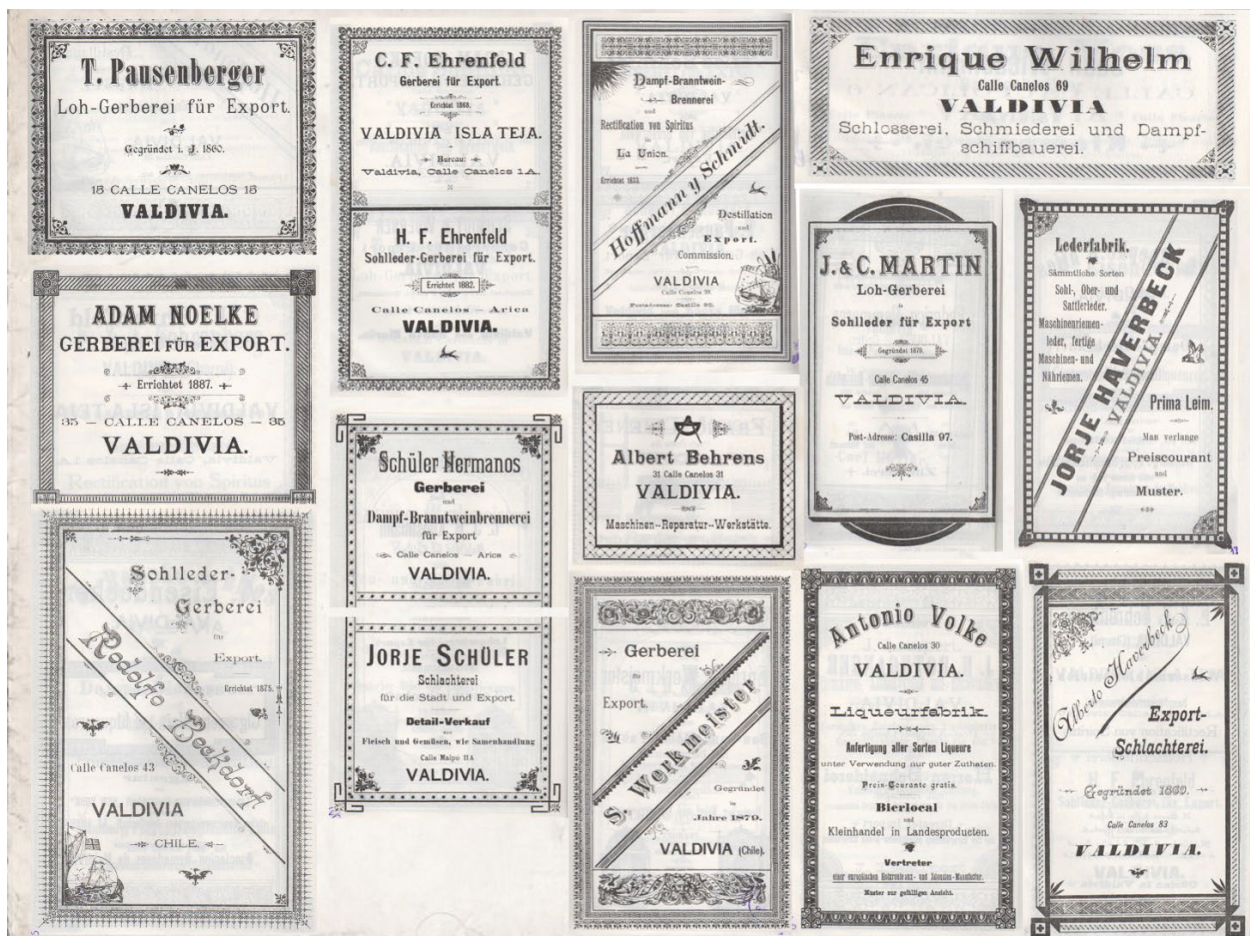 T. Pausenberger
Loh-Gerberei für Export.
Gegründet i. J. 1860.
18 CALLE CANELOS 18
VALDIVIA.
ADAM NOELKE
GERBEREI FÜR EXPORT.
Errichtet 1887.
35 – CALLE CANELOS – 35
VALDIVIA.
Sohlleder-
Gerberei
für
Export.
Errichtet 1875.
Rodolfo Beckdorf
Calle Canelos 43
VALDIVIA
CHILE.
C. F. Ehrenfeld
Gerberei für Export.
Errichtet 1868.
VALDIVIA - ISLA TEJA.
Bureau:
Valdivia, Calle Canelos 1 A.
H. F. Ehrenfeld
Sohlleder-Gerberei für Export.
Errichtet 1882.
Calle Canelos – Arica
VALDIVIA.
Schüler Hermanos
Gerberei
und
Dampf-Branntweinbrennerei
für Export
Calle Canelos – Arica
VALDIVIA.
JORJE SCHÜLER
Schlachterei
für die Stadt und Export.
Detail-Verkauf
von
Fleisch und Gemüsen, wie Samenhandlung
Calle Maipó 11A
VALDIVIA.
Dampf-Branntwein-
Brennerei
und
Rectification von Spiritus
in
La Union.
Errichtet 1853.
Hoffmann y Schmidt.
Destillation
und
Export.
Commission.
VALDIVIA
Postadresse: Casilla
Albert Behrens
31 Calle Canelos 31
VALDIVIA.
Maschinen-Reparatur-Werkstätte.
Gerberei
für
Export.
S. Werkmeister
Gegründet
im
Jahre 1879.
VALDIVIA (Chile).
Enrique Wilhelm
Calle Canelos 69
VALDIVIA
Schlosserei, Schmiederei und Dampf-
schiffbauerei.
J. & C. MARTIN
Loh-Gerberei
in
Sohlleder für Export
Gegründet 1879.
Calle Canelos 45
VALDIVIA.
Post-Adresse: Casilla 97.
Lederfabrik.
Sämmtliche Sorten
Sohl-, Ober- und
Sattlerleder.
Maschinenriemen-
leder, fertige
Maschinen- und
Nähriemen.
JORJE HAVERBECK
VALDIVIA.
Prima Leim.
Man verlange
Preiscourant
und
Muster.
Antonio Volke
Calle Canelos 30
VALDIVIA.
Liqueurfabrik
Anfertigung aller Sorten Liqueure
unter Verwendung nur guter Zuthaten.
Preis-Courante gratis.
Bierlocal
und
Kleinhandel in Landesproducten.
Vertreter
einer europäischen
Muster zur gefälligen Ansicht.
Alberto Haverbeck
Export-
Schlachterei.
Gegründet 1869.
Calle Canelos 83
VALDIVIA.